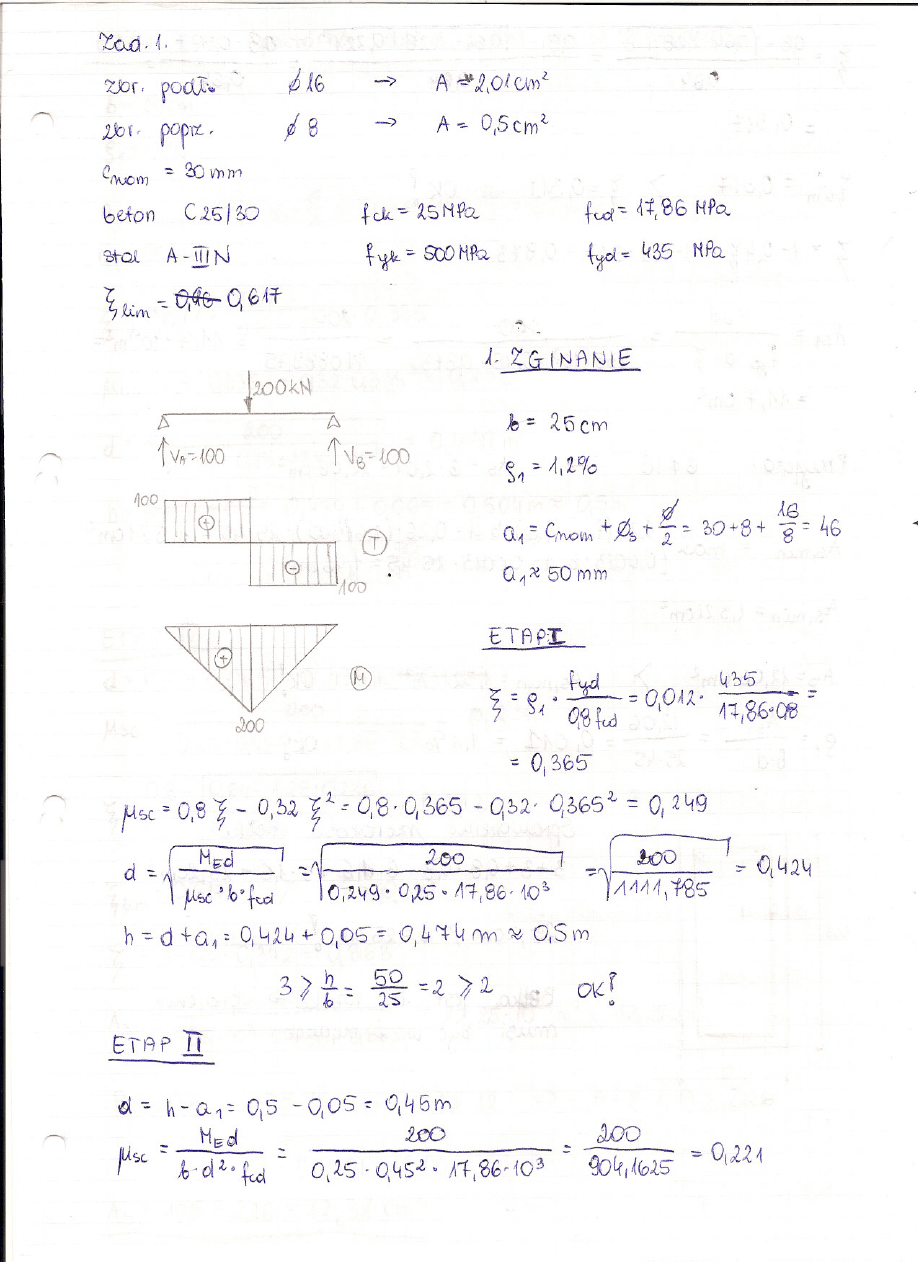 Zad. 1.
zbr. podł. ϕ16 → A = 2,01 cm²
zbr. poprz. ϕ8 → A = 0,5 cm²
c_nom = 30 mm
beton C25/30 f_ck = 25 MPa f_cd = 17,86 MPa
stal A-IIIN f_yk = 500 MPa f_yd = 435 MPa
ξ_lim = 0,617
1. ZGINANIE
200kN
V_A=100 V_B=100
b = 25 cm
ρ₁ = 1,2%
100 + T
- 100
a₁ = c_nom + ϕ_s + ϕ/2 = 30 + 8 + 16/8 = 46
a₁ ≈ 50 mm
ETAP I
+ M
200
ξ = ρ₁ · f_yd/0,8 f_cd = 0,012 · 435/17,86·0,8 =
= 0,365
μ_sc = 0,8 ξ − 0,32 ξ² = 0,8 · 0,365 − 0,32 · 0,365² = 0,249
d = √(M_Ed/μ_sc·b·f_cd) = √(200/0,249·0,25·17,86·10³) = √(200/1111,785) = 0,424
h = d + a₁ = 0,424 + 0,05 = 0,474 m ≈ 0,5 m
3 ≥ h/b = 50/25 = 2 ≥ 2 OK!
ETAP II
d = h − a₁ = 0,5 − 0,05 = 0,45 m
μ_sc = M_Ed/b·d²·f_cd = 200/0,25·0,45²·17,86·10³ = 200/904,1625 = 0,221